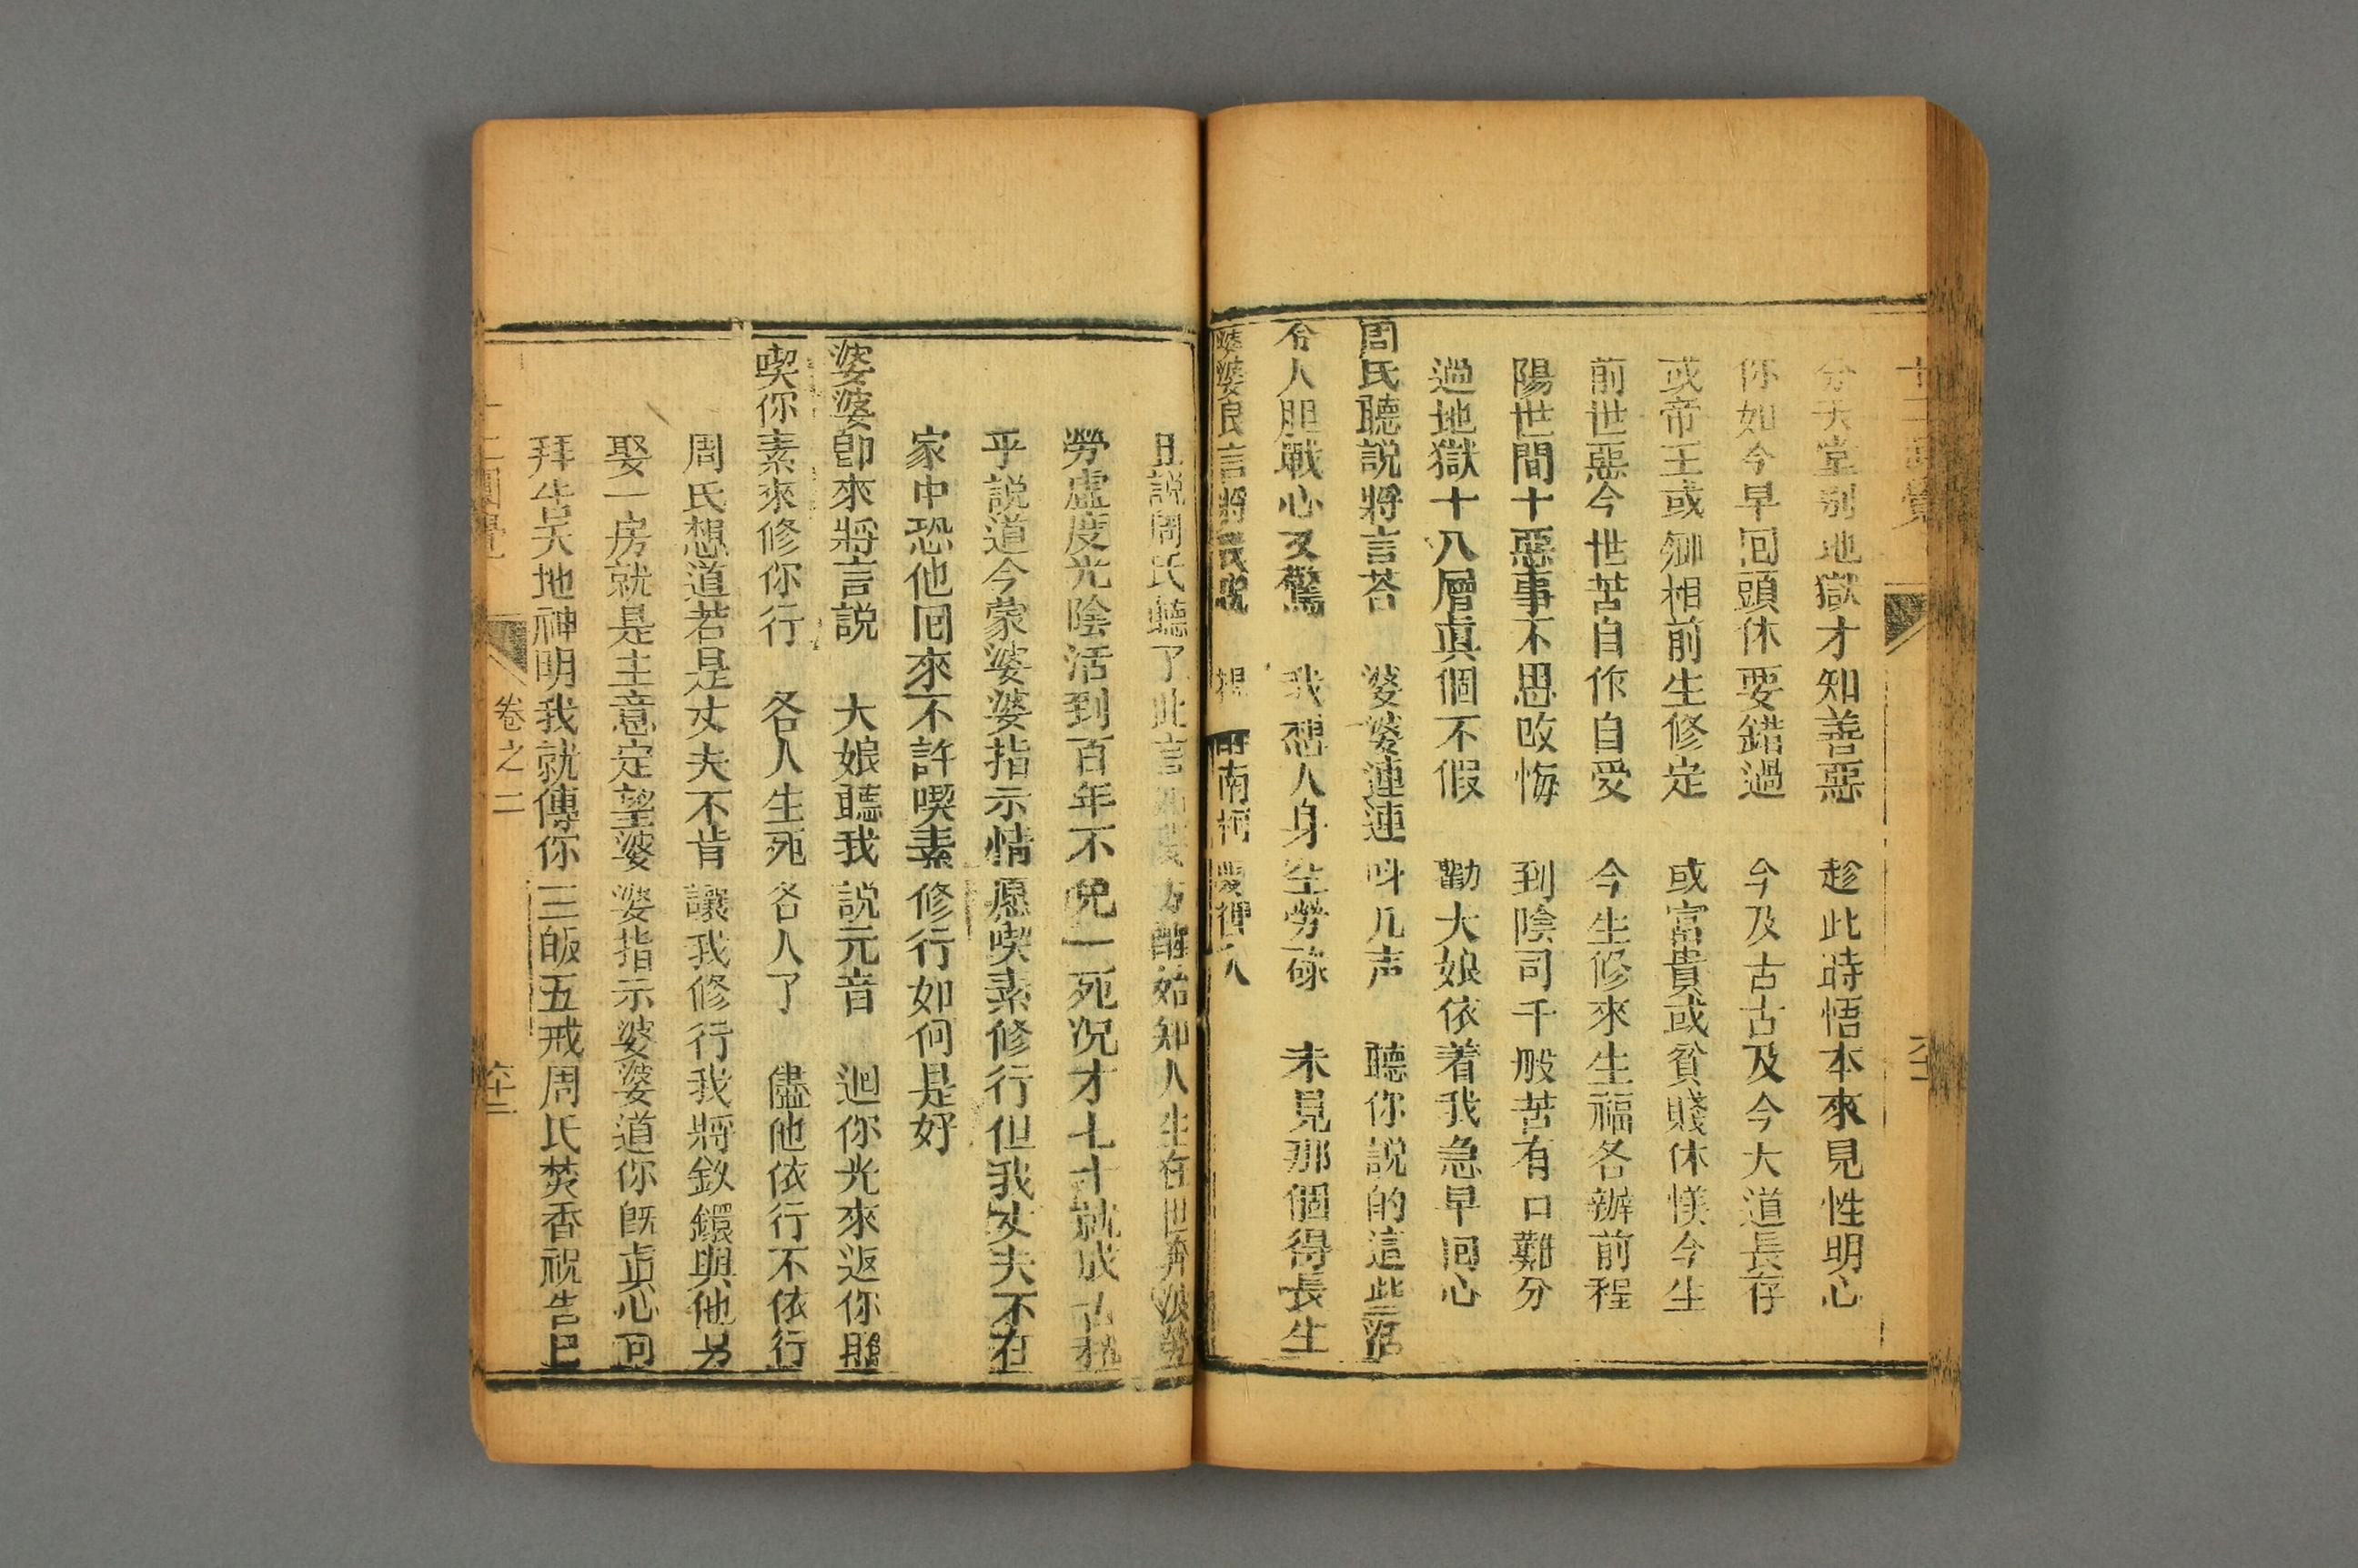 分天堂别地獄才知善惡 趁此時悟本來見性明心
你如今早囘頭休要錯過 今及古古及今大道長存
或帝王或卿相前生修定 或富貴或貧賤休悮今生
前世惡今世苦自作自受 今生修來生福各辦前程
陽世間十惡事不思改悔 到陰司千般苦有口難分
過地獄十八層眞個不假 勸大娘依着我急早囘心
周氏聽說將言荅 婆婆連連呌几声 聽你說的這些話
令人胆戰心又驚 我想人身空勞碌 未見那個得長生
婆婆良言將我說 南柯夢裡人
且説周氏聽了此言方醒始知人生在世奔波勞
勞虛度光陰活到百年不免一死况才七十就成古稀
乎説道今蒙婆婆指示情愿喫素修行但我丈夫不在
家中恐他囘來不許喫素修行如何是好
婆婆卽來將言説 大娘聽我說元音 迴你光來返你照
喫你素來修你行 各人生死各人了 儘他依行不依行
周氏想道若是丈夫不肯讓我修行我將釵鐶與他另
娶一房就是主意定望婆婆指示婆婆道你既眞心可
拜告天地神明我就傳你三皈五戒周氏焚香祝告已
卷之二